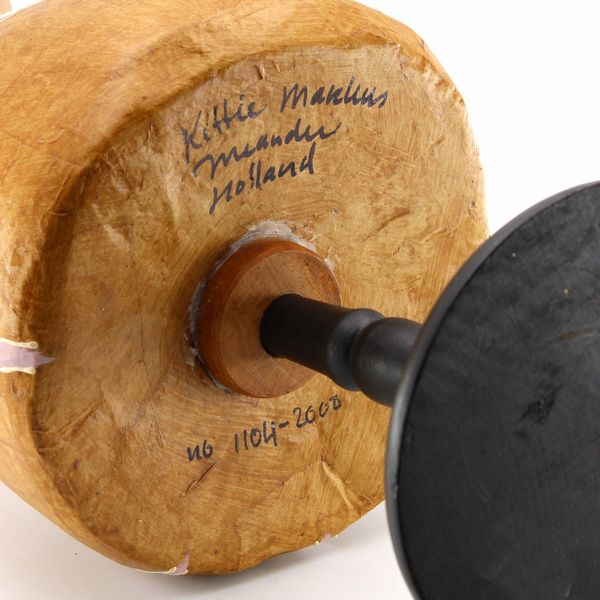 Kittie Markus
Meander
Holland
no 1104-2000